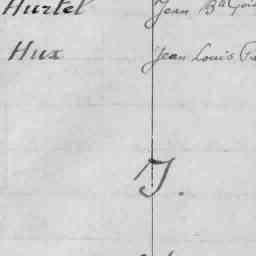 Hurtel Jean Bte
Hux Jean Louis
J.